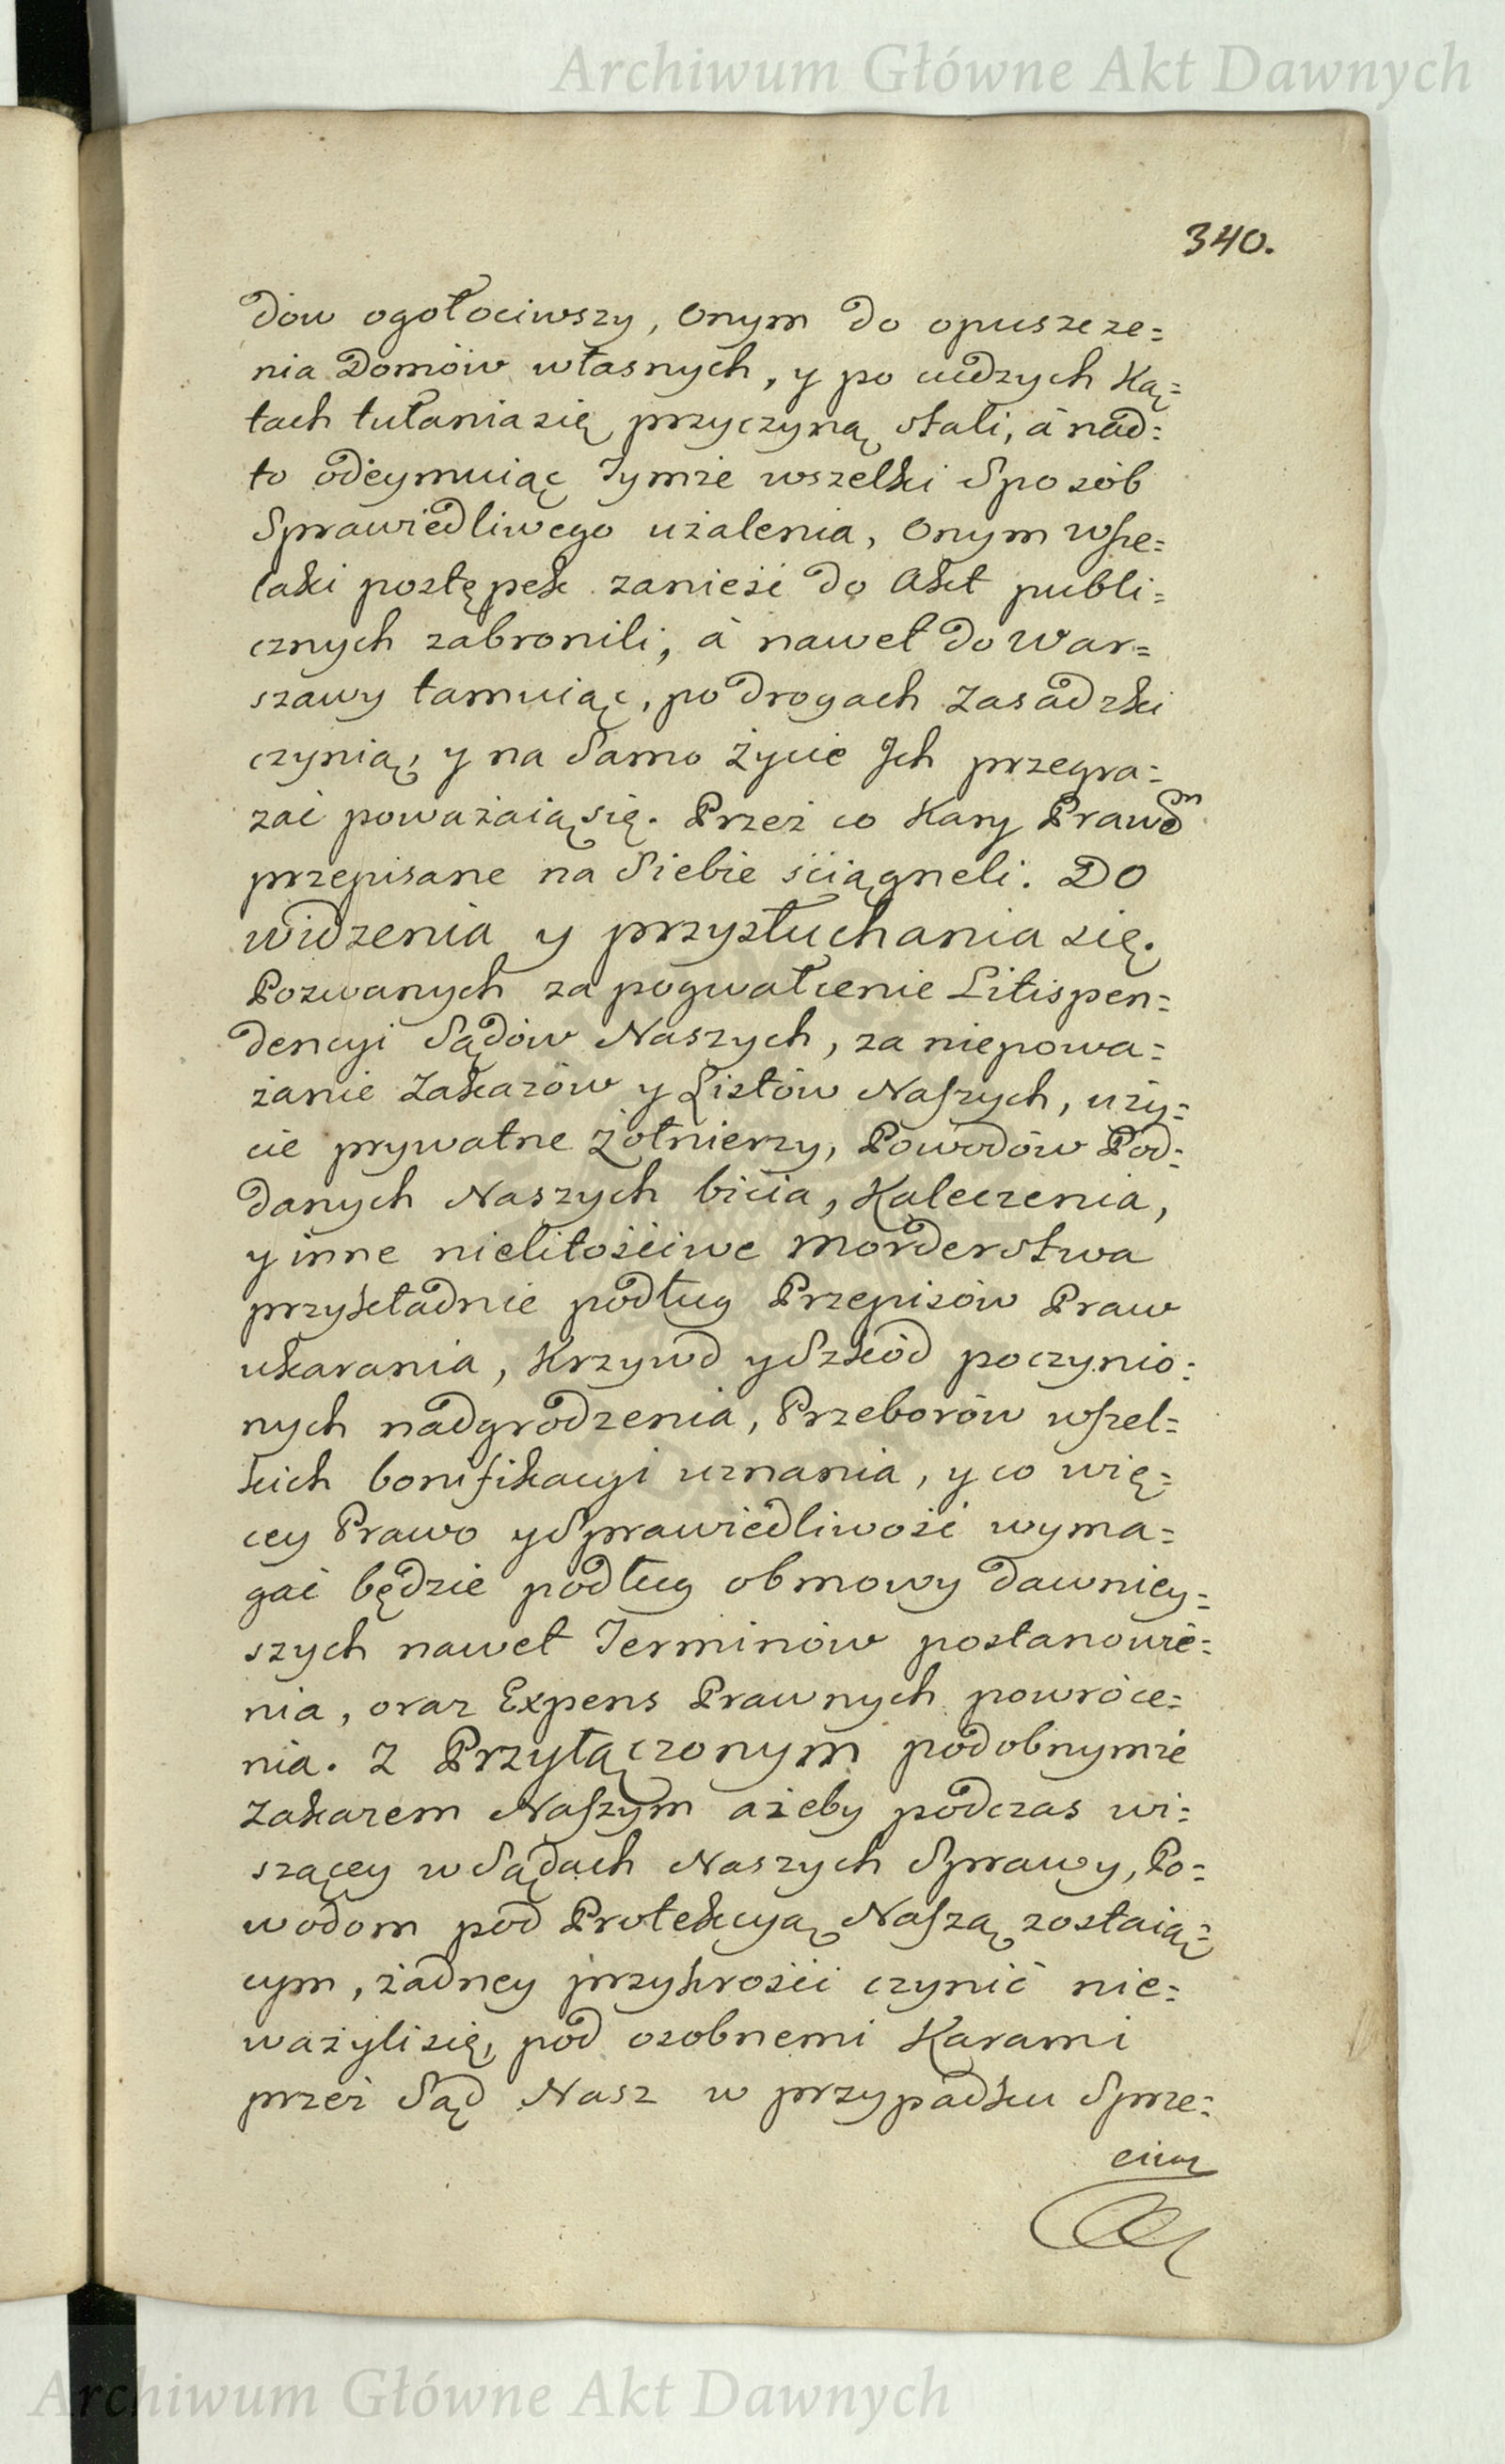 Archiwum Główne Akt Dawnych
340.
dow ogołociwszy, Onym do opuszcze=
nia Domów własnych, y po cudzych Ką=
tach tułania się przyczyną stali, á nad=
to odeymuiąc Tymże wszelki Sposób
Sprawiedliwego użalenia, Onym wsze=
laki postępek zanieść do Akt publi=
cznych zabronili, á nawet do War=
szawy tamuiąc, po drogach Zasadzki
czynią, y na Samo Życie Jch przegra=
żać poważaią się. Przez co Kary Prawem
przepisane na Siebie ściągneli. Do
widzenia y przysłuchania się.
Pozwanych za pogwałcenie Litispen=
dencyi Sądów Naszych, za niepowa=
żanie Zakazów y Listów Naszych, uży=
cie prywatne Żołnierzy, Powodów Pod=
danych Naszych bicia, Kaleczenia,
y inne nielitościwe morderstwa
przykładnie podług Przepisów Praw
ukarania, Krzywd y Szkód poczynio=
nych nadgrodzenia, Przeborów wszel=
kich bonifikacyi uznania, y co wię=
cey Prawo y Sprawiedliwość wyma=
gać będzie podług obmowy dawniey=
szych nawet Terminów postanowie=
nia, oraz Expens Prawnych powróce=
nia. Z Przyłączonym podobnymże
Zakazem Naszym ażeby podczas wi=
szącey w Sądach Naszych Sprawy, Po=
wodom pod Protekcyą Naszą zostaią=
cym, żadney przykrości czynić nie=
ważyli się, pod osobnemi Karami
przez Sąd Nasz w przypadku Sprze=
ciw
Archiwum Główne Akt Dawnych